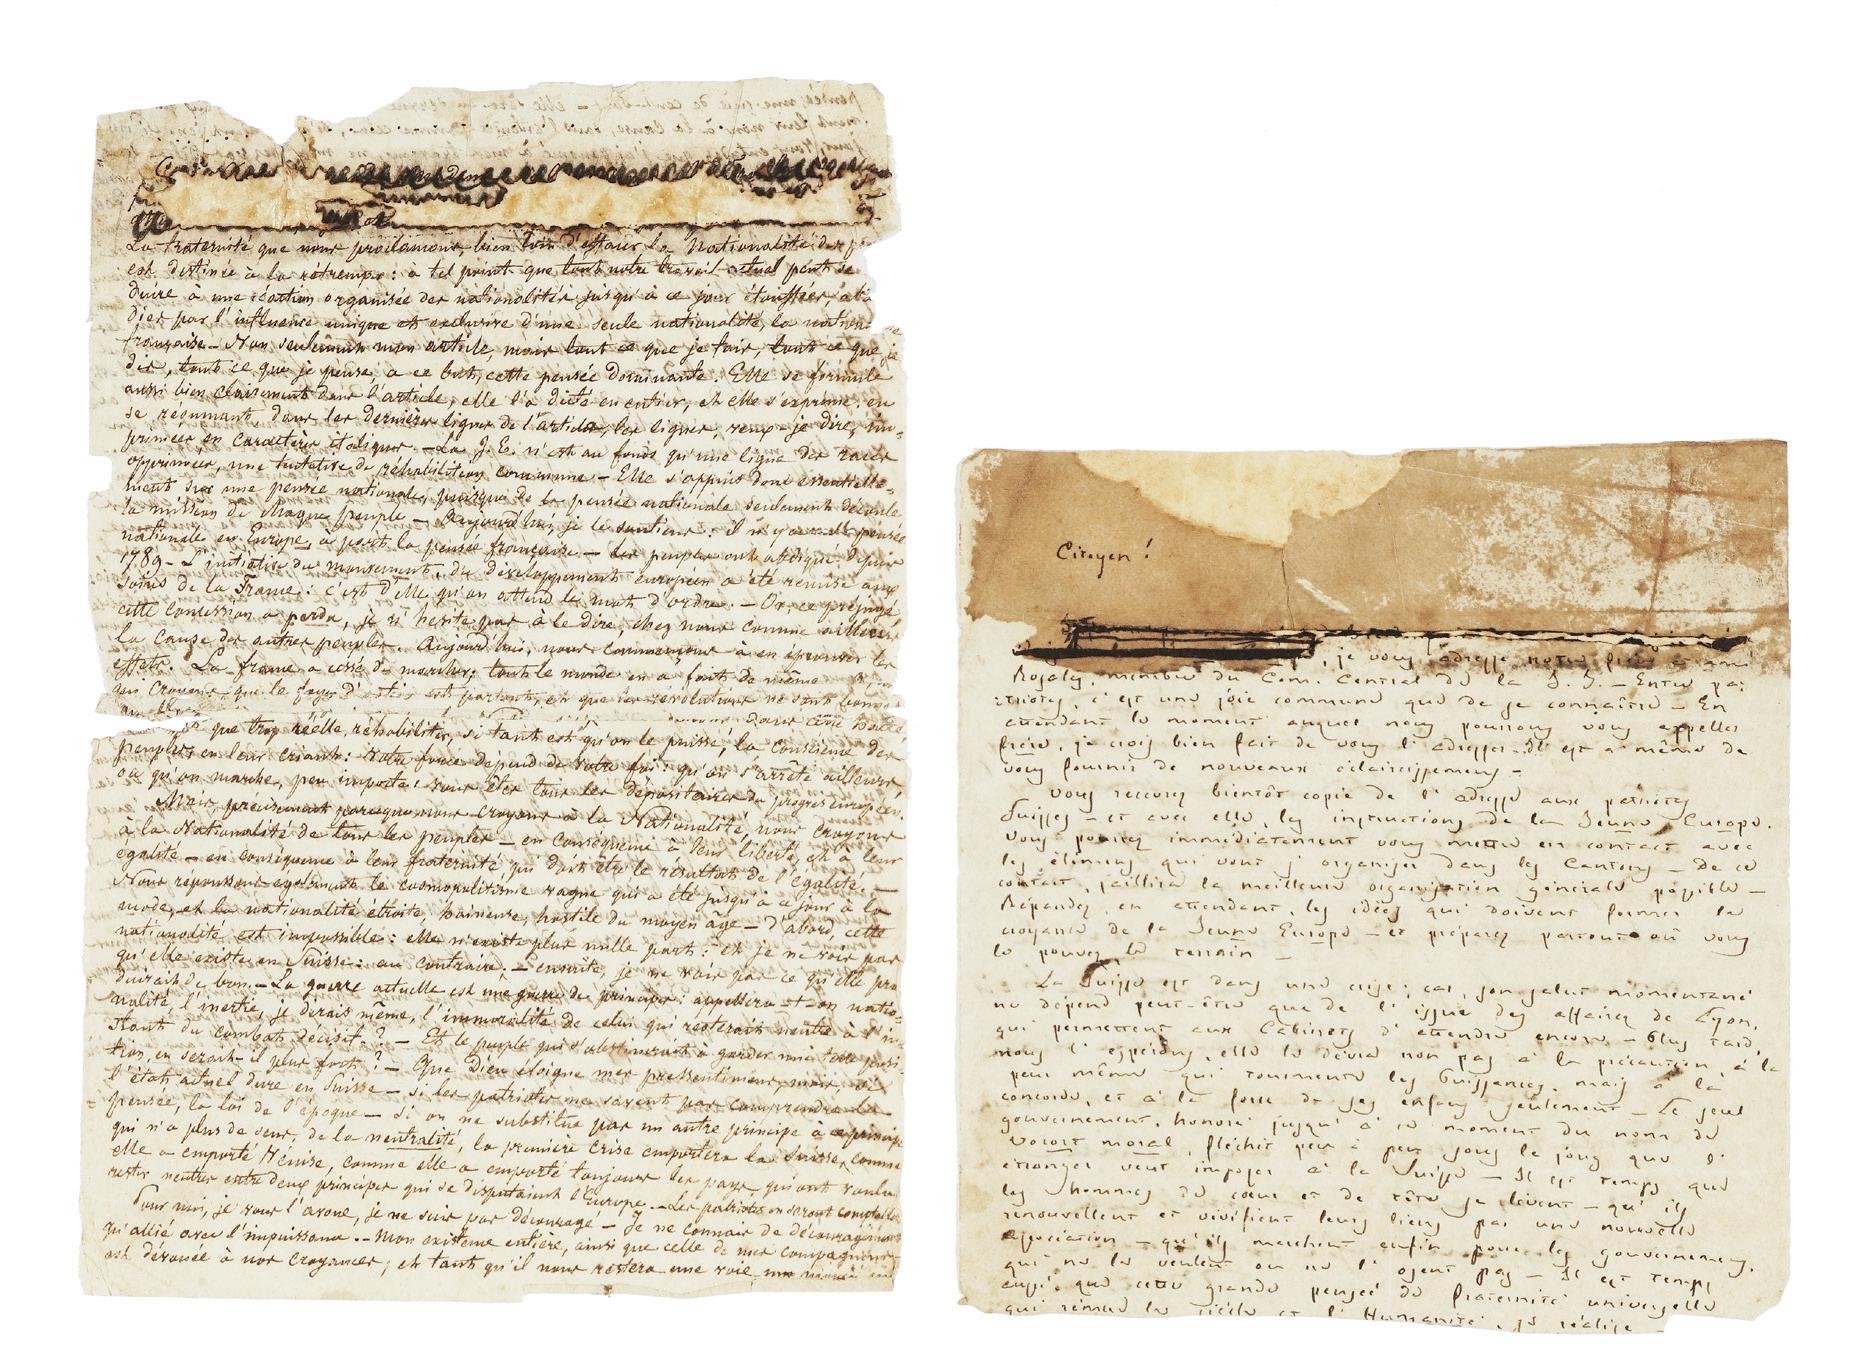 La fraternité que nous proclamons, bien loin d'effacer la Nationalité des
est destinée à la retremper : à tel point que tout notre travail actuel peut se
duire à une réaction organisée des nationalités jusqu'à ce jour étouffées,
par l'influence unique et exclusive d'une seule nationalité, la
française — Non seulement mon article, mais tout ce que je fais, tout ce que je
dis, tout ce que je pense, a ce but, cette pensée dominante. Elle se formule
aussi bien clairement dans l'article, elle l'a dicté en entier, et elle s'exprime en
se résumant, dans les dernières lignes de l'article, les lignes, veux-je dire, im-
primées en caractères italiques. — La J. E. n'est au fonds qu'une ligue des races
opprimées, une tentative de réhabilitation commune — Elle s'appuie donc essentielle-
ment sur une pensée nationale, puisque de la pensée nationale seulement découle
la mission de chaque peuple — Aujourd'hui, je le soutiens : il n'y a nulle pensée
nationale en Europe, à part la pensée française — Les peuples ont abdiqué depuis
1789 — L'initiative du mouvement, du développement européen a été remise aux
soins de la France : c'est d'elle qu'on attend le mot d'ordre. — Or, ce préjugé
cette concession a perdu, je n'hésite pas à le dire, chez nous comme ailleurs
la cause des autres peuples. Aujourd'hui, nous commençons à en éprouver les
effets. La france a cessé de marcher : tout le monde en a fait de même
croyons, que le foyer d' est partout, et que les révolutions ne sont
que trop réelle, réhabiliter, si tant est qu'on le puisse, la Conscience des
peuples en leur criant : Votre force dépend de votre foi : qu'on s'arrête ailleurs
ou qu'on marche, peu importe : vous êtes tous les dépositaires du progrès européen.
Mais, précisément parceque nous croyons à la Nationalité, nous croyons
à la Nationalité de tous les peuples — en conséquence à leur liberté, et à leur
égalité — en conséquence à leur fraternité, qui doit être le résultat de l'égalité. —
Nous repoussons également le cosmopolitisme vague qui a été jusqu'à ce jour à la
mode, et la nationalité étroite, haineuse, hostile du moyen âge — d'abord, cette
nationalité est impossible : elle n'existe plus nulle part : et je ne vois pas
qu'elle existe en Suisse : au contraire. — ensuite, je ne vois pas ce qu'elle pro
duirait de bon. — La guerre actuelle est une guerre de principes : appellera-t-on natio-
nalité, l'inertie, je dirais même, l'immoralité de celui qui resterait neutre à l'in-
stant du combat décisif ? — Et le peuple qui s'obstinerait à garder une telle posi-
tion, en serait-il plus fort ? — Que Dieu éloigne mes pressentimens, mais, si
l'état actuel dure en Suisse — si les patriotes ne savent pas comprendre la
pensée, la loi de l'époque — si on ne substitue pas un autre principe à ce principe
qui n'a plus de sens, de la neutralité, la première crise emportera la Suisse, comme
elle a emporté Venise, comme elle a emporté toujours les pays qui ont voulu
rester neutres entre deux principes qui se disputaient l'Europe. — Les patriotes en seront
Pour moi, je vous l'avoue, je ne suis pas découragé — Je ne connais de découragement
qu'allié avec l'impuissance. — Mon existence entière, ainsi que celle de mes compagnons
est dévouée à nos croyances ; et tant qu'il nous restera une voie,
Citoyen !
, je vous adresse notre frère & ami
Rosales, membre du Com. Central de la J. I. — Entre pa-
triotes, c'est une joie commune que de se connaître — En
attendant le moment auquel nous pourrons vous appeller
frère, je crois bien fait de vous l'adresser. Il est à même de
vous fournir de nouveaux éclaircissemens —
Vous recevrez bientôt copie de l'adresse aux patriotes
Suisses — et avec elle, les instructions de la Jeune Europe.
Vous pourrez immédiatement vous mettre en contact avec
les élémens qui vont s'organiser dans les Cantons — De ce
contact, jaillira la meilleure organisation générale possible —
Répandez, en attendant, les idées qui doivent former la
croyance de la Jeune Europe — et préparez partout où vous
le pouvez le terrain —
La Suisse est dans une crise ; car, son salut momentané
ne dépend peut-être que de l'issue des affaires de Lyon,
qui permettent aux Cabinets d'attendre encore — Plus tard,
nous l'espérons, elle le devra non pas à la précaution, à la
peur même qui tourmente les Puissances, mais à la
concorde, et à la force de ses enfans seulement — Le seul
gouvernement, honoré jusqu'à ce moment du nom de
Vorort moral, fléchit peu à peu sous le joug que l'
étranger veut imposer à la Suisse — Il est temps que
les hommes de cœur et de tête se lèvent — qu'ils
renouvellent et vivifient leurs liens par une nouvelle
association — qu'ils marchent enfin pour les gouvernemens,
qui ne le veulent ou ne l'osent pas — Il est temps
aussi que cette grande pensée de fraternité universelle
qui remue le siècle et l'Humanité, se réalise —